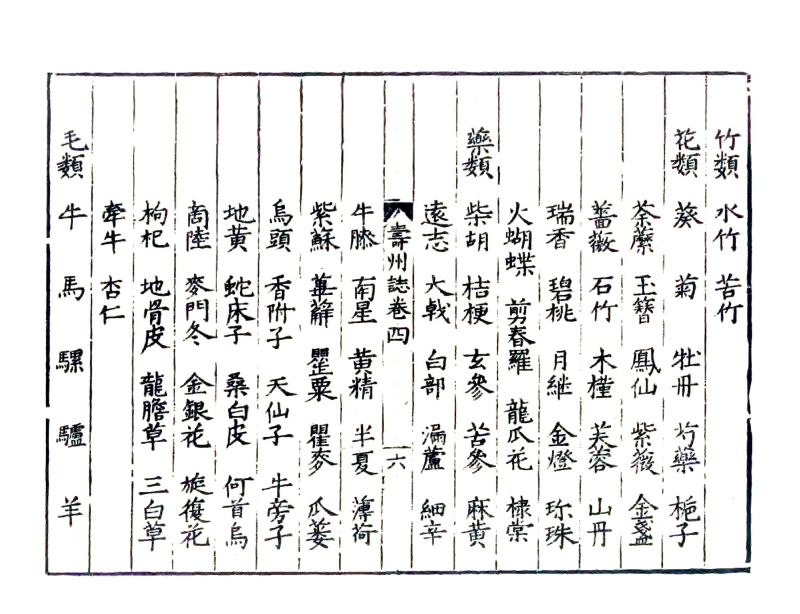 竹類 水竹 苦竹
花類 葵 菊 牡丹 芍藥 梔子
荼蘼 玉簪 鳳仙 紫薇 金盞
薔薇 石竹 木槿 芙蓉 山丹
瑞香 碧桃 月継 金燈 珎珠
火蝴蝶 剪春羅 龍瓜花 棣棠
藥類 柴胡 桔梗 玄參 苦參 麻黄
遠志 大戟 白部 漏蘆 細辛
壽州誌卷四 六
牛膝 南星 黄精 半夏 薄荷
紫蘇 萆薢 罌粟 瞿麥 瓜蔞
烏頭 香附子 天仙子 牛旁子
地黄 蛇床子 桑白皮 何首烏
商陸 麥門冬 金銀花 旋復花
枸杞 地骨皮 龍膽草 三白草
牽牛 杏仁
毛類 牛 馬 騾 驢 羊